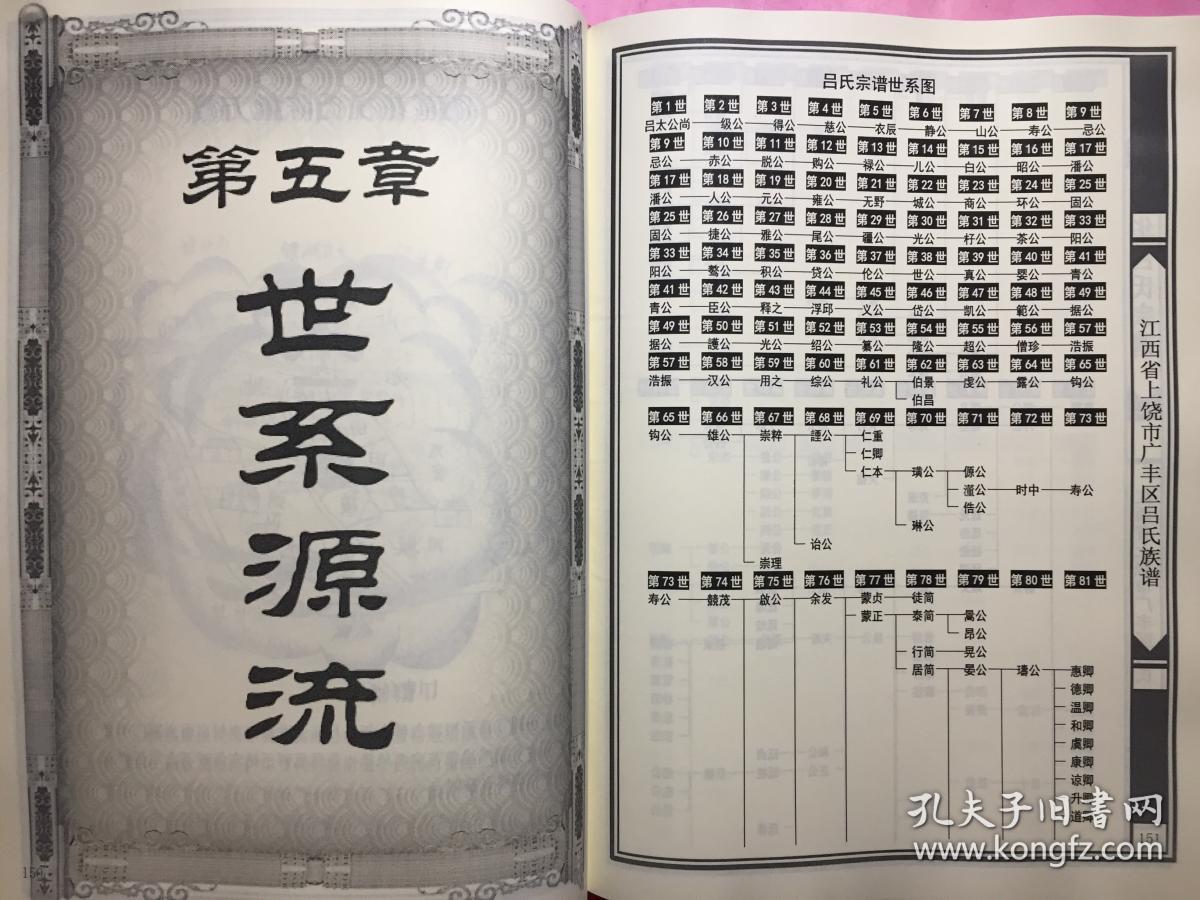 第五章
世系源流
150
吕氏宗谱世系图
第1世 第2世 第3世 第4世 第5世 第6世 第7世 第8世 第9世
吕太公尚 级公 得公 慈公 衣辰 静公 山公 寿公 忌公
第9世 第10世 第11世 第12世 第13世 第14世 第15世 第16世 第17世
忌公 赤公 脱公 购公 禄公 儿公 白公 昭公 潘公
第17世 第18世 第19世 第20世 第21世 第22世 第23世 第24世 第25世
潘公 人公 元公 雍公 无野 城公 商公 环公 固公
第25世 第26世 第27世 第28世 第29世 第30世 第31世 第32世 第33世
固公 捷公 雅公 尾公 疆公 光公 杍公 茶公 阳公
第33世 第34世 第35世 第36世 第37世 第38世 第39世 第40世 第41世
阳公 鹜公 积公 贷公 伦公 世公 真公 婴公 青公
第41世 第42世 第43世 第44世 第45世 第46世 第47世 第48世 第49世
青公 臣公 释之 浮邱 义公 岱公 凯公 範公 据公
第49世 第50世 第51世 第52世 第53世 第54世 第55世 第56世 第57世
据公 護公 光公 绍公 纂公 隆公 超公 僧珍 浩振
第57世 第58世 第59世 第60世 第61世 第62世 第63世 第64世 第65世
浩振 汉公 用之 综公 礼公 伯景 虔公 露公 钩公
伯昌
第65世 第66世 第67世 第68世 第69世 第70世 第71世 第72世 第73世
钩公 雄公 崇粹 諲公 仁重
仁卿
仁本 璜公 傆公
潼公 时中 寿公
俈公
琳公
诒公
崇理
第73世 第74世 第75世 第76世 第77世 第78世 第79世 第80世 第81世
寿公 競茂 啟公 余发 蒙贞 徒简
蒙正 泰简 暠公
昂公
行简 晃公
居简 晏公 璹公 惠卿
德卿
温卿
和卿
虞卿
康卿
谅卿
升卿
道
江西省上饶市广丰区吕氏族谱
151
孔夫子旧书网
www.kongfz.com